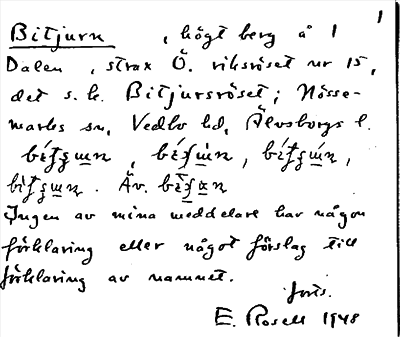 1
Bitjurn , högt berg å I
Dalen , strax Ö. riksröset nr 15,
det s.k. Bitjursröset; Nösse-
marks sn, Vedbo hd, Älvsborgs l.
Av.
Ingen av mina meddelare har någon
förklaring eller något förslag till
förklaring av namnet.
forts.
E. Rosell 1948